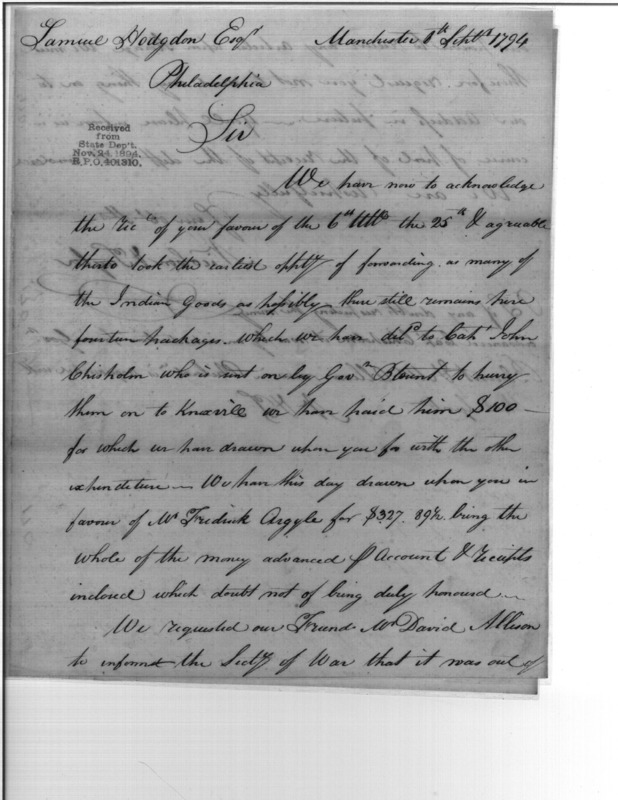 Samuel Hodgdon Esqr. Manchester 1th Septr. 1794
Philadelphia
Received
from
State Dep't.
Nov. 24, 1894.
R.P.O. 401310.
Sir
We have now to acknowledge
the rect. of your favour of the 6th the 25th & agreable
thereto took the earliest opptty. of forwarding as many of
the Indian Goods as possible there still remains here
fourteen packages which we have deld. to Capt. John
Chisholm who is sent on by Govr. Blount to hurry
them on to Knoxvill we have paid him $100 —
for which we have drawn upon you for with the other
expenditure — We have this day drawn upon you in
favour of Mr. Fredrick Argyle for $327. 89½ being the
whole of the money advanced Account & receipts
inclosed which doubt not of being duly honoured —
We requested our Friend Mr. David Allison
to inform the Secty. of War that it was out of